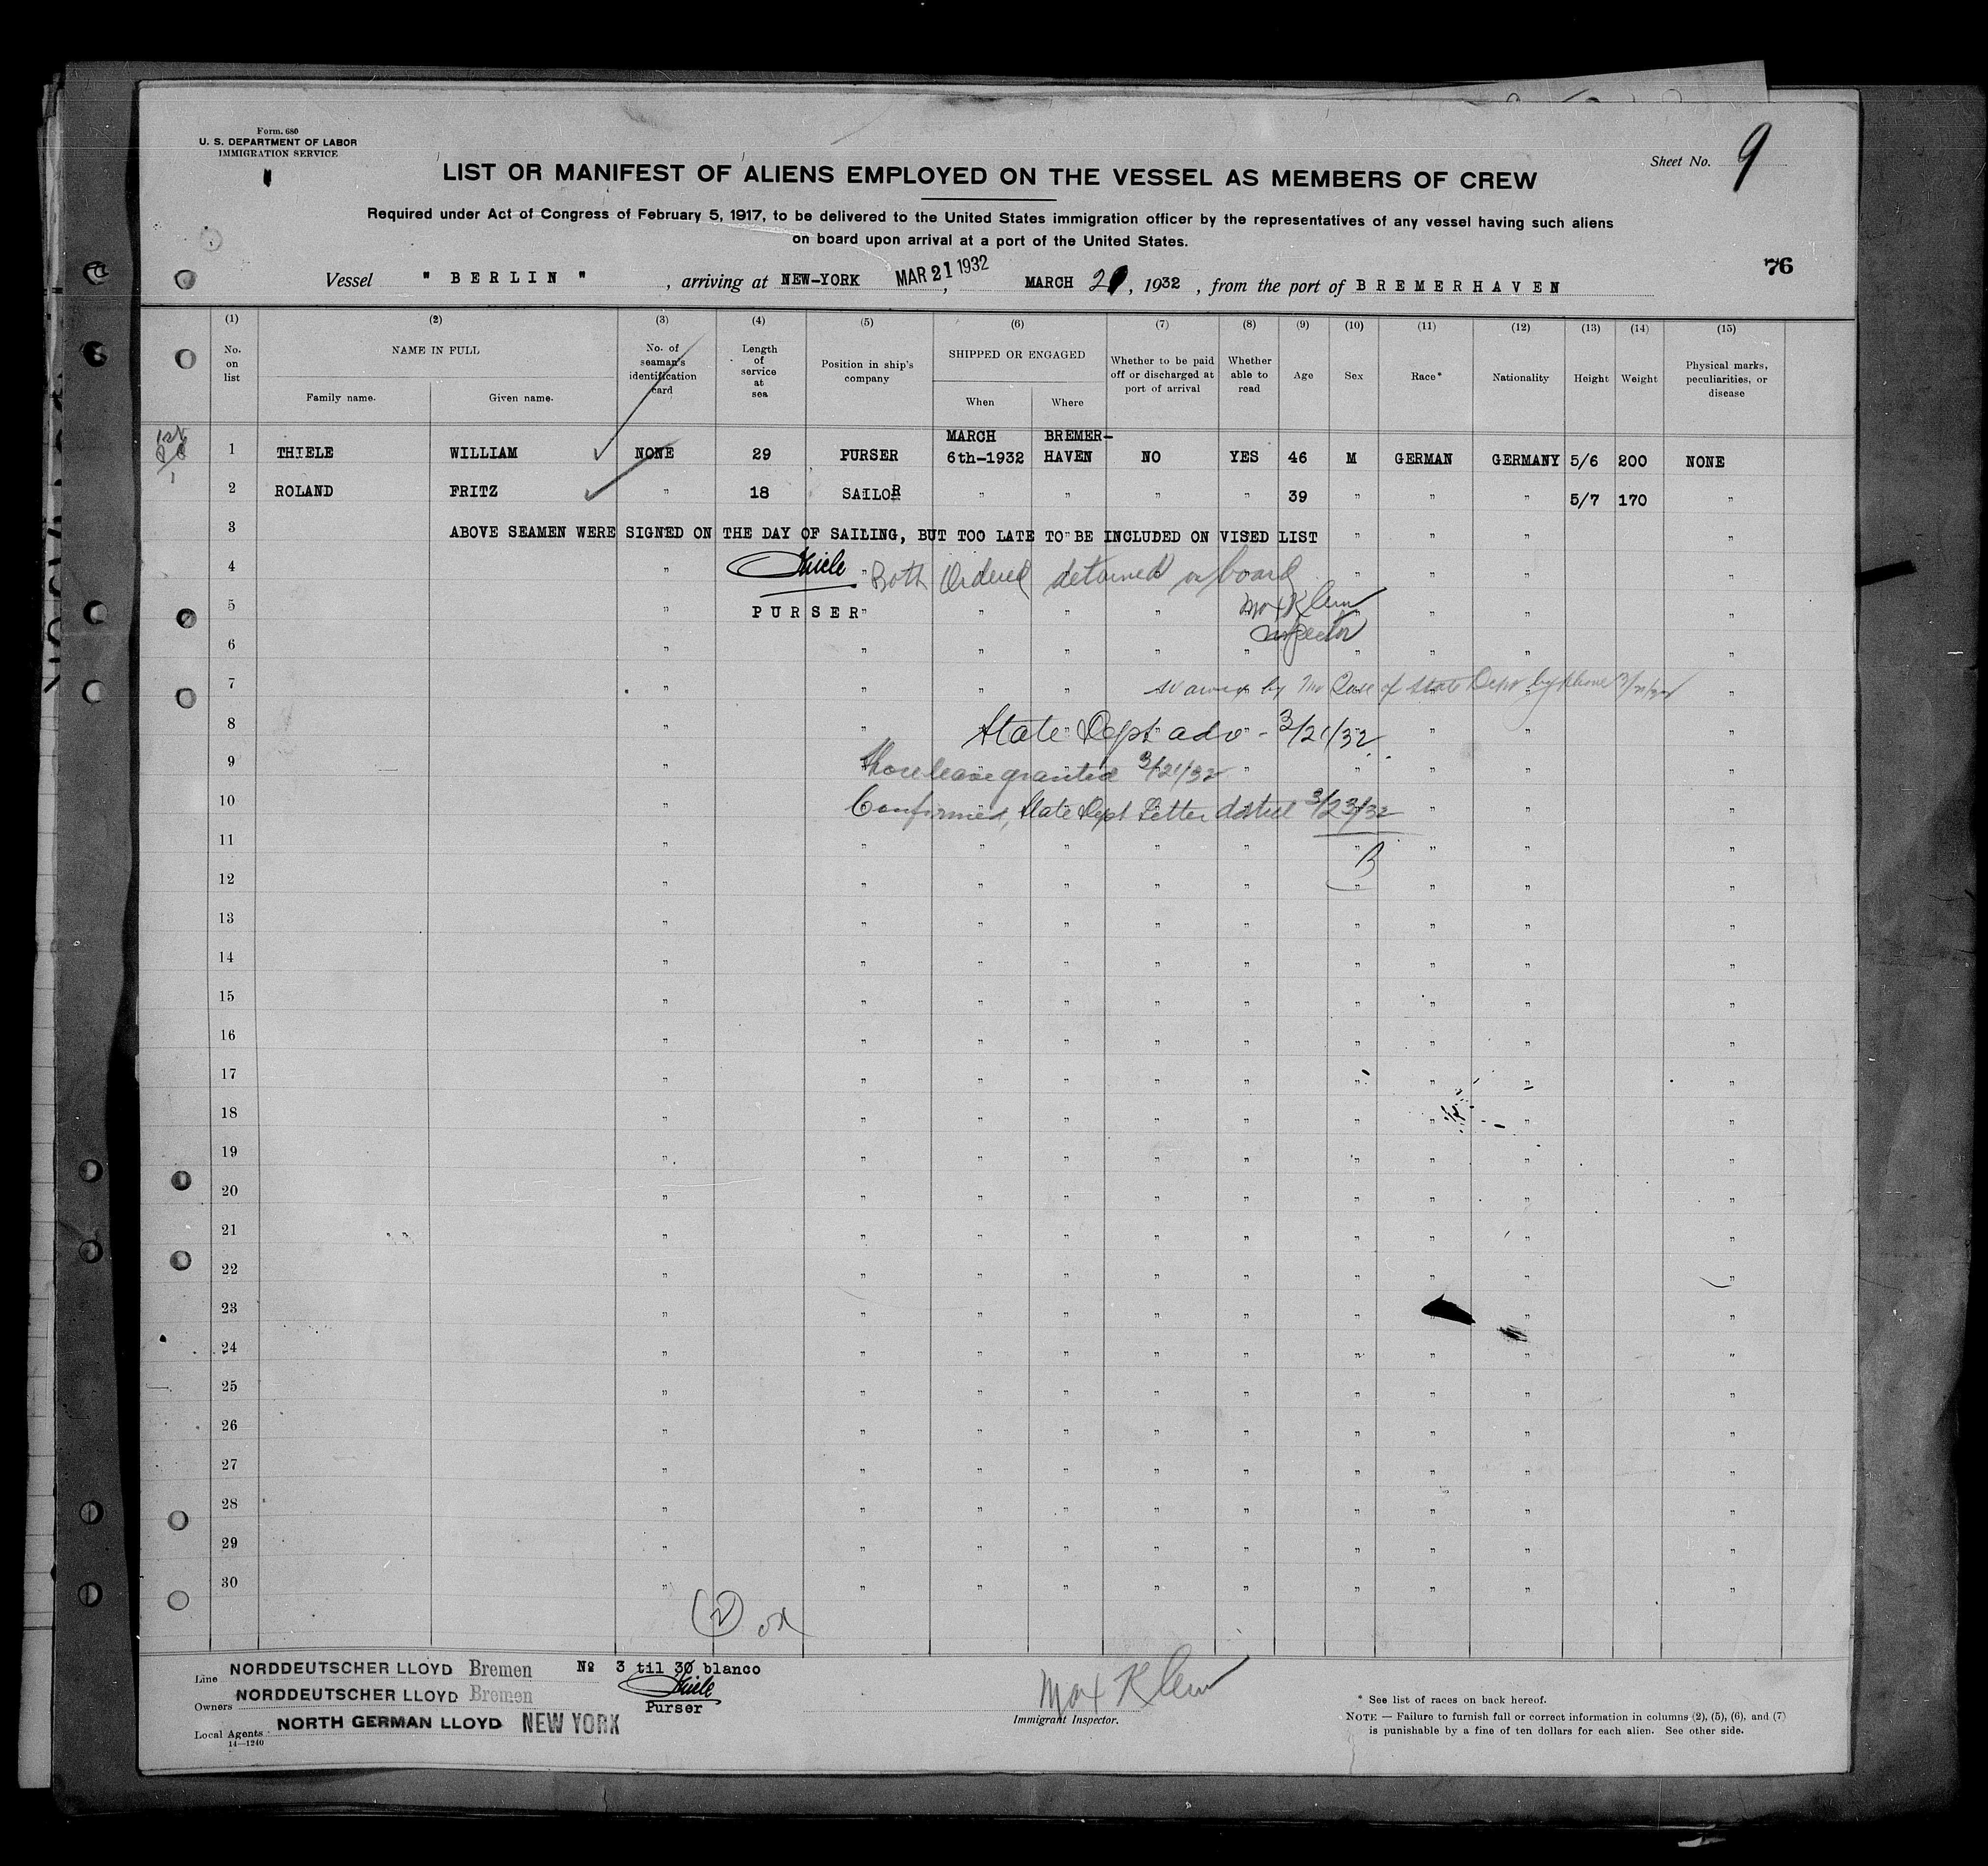 Form. 680
U. S. DEPARTMENT OF LABOR
IMMIGRATION SERVICE
Sheet No. 9
LIST OR MANIFEST OF ALIENS EMPLOYED ON THE VESSEL AS MEMBERS OF CREW
Required under Act of Congress of February 5, 1917, to be delivered to the United States immigration officer by the representatives of any vessel having such aliens
on board upon arrival at a port of the United States.
76
Vessel " BERLIN " , arriving at NEW-YORK MAR 21 1932 , MARCH 21, 1932 , from the port of BREMERHAVEN
(1) (2) (3) (4) (5) (6) (7) (8) (9) (10) (11) (12) (13) (14) (15)
No. on list NAME IN FULL Family name. Given name. No. of seaman's identification card Length of service at sea Position in ship's company SHIPPED OR ENGAGED When Where Whether to be paid off or discharged at port of arrival Whether able to read Age Sex Race* Nationality Height Weight Physical marks, peculiarities, or disease
1 THIELE WILLIAM NONE 29 PURSER MARCH 6th-1932 BREMER-HAVEN NO YES 46 M GERMAN GERMANY 5/6 200 NONE
2 ROLAND FRITZ " 18 SAILOR " " " " 39 " " " 5/7 170 "
3 ABOVE SEAMEN WERE SIGNED ON THE DAY OF SAILING, BUT TOO LATE TO BE INCLUDED ON VISED LIST " " " "
4 " Thiele " Both Ordered detained on board " " " "
5 " PURSER " " " " Max Klein " " " "
6 " " " " " " Inspector " " "
7 " " " " by Mr of State Dept by phone 3/21/32 "
8 " " State Dept adv - 3/21/32 " " "
9 " Shore leave granted 3/21/32 " " " " "
10 " Confirmed, State Dept Letter dated 3/23/32 " " "
11 " " " " " " " " " "
12 " " " " " " " " " "
13 " " " " " " " " " "
14 " " " " " " " " " "
15 " " " " " " " " " "
16 " " " " " " " " " "
17 " " " " " " " " " "
18 " " " " " " " " " "
19 " " " " " " " " " "
20 " " " " " " " " " "
21 " " " " " " " " " "
22 " " " " " " " " " "
23 " " " " " " " " " "
24 " " " " " " " " " "
25 " " " " " " " " " "
26 " " " " " " " " " "
27 " " " " " " " " " "
28 " " " " " " " " " "
29 " " " " " " " " " "
30 " " " " " " " " " "
(2) OK
Line NORDDEUTSCHER LLOYD Bremen № 3 til 30 blanco
Owners NORDDEUTSCHER LLOYD Bremen Thiele
Purser
Local Agents NORTH GERMAN LLOYD NEW YORK
14—1240
Max Klein
Immigrant Inspector.
* See list of races on back hereof.
NOTE — Failure to furnish full or correct information in columns (2), (5), (6), and (7)
is punishable by a fine of ten dollars for each alien. See other side.